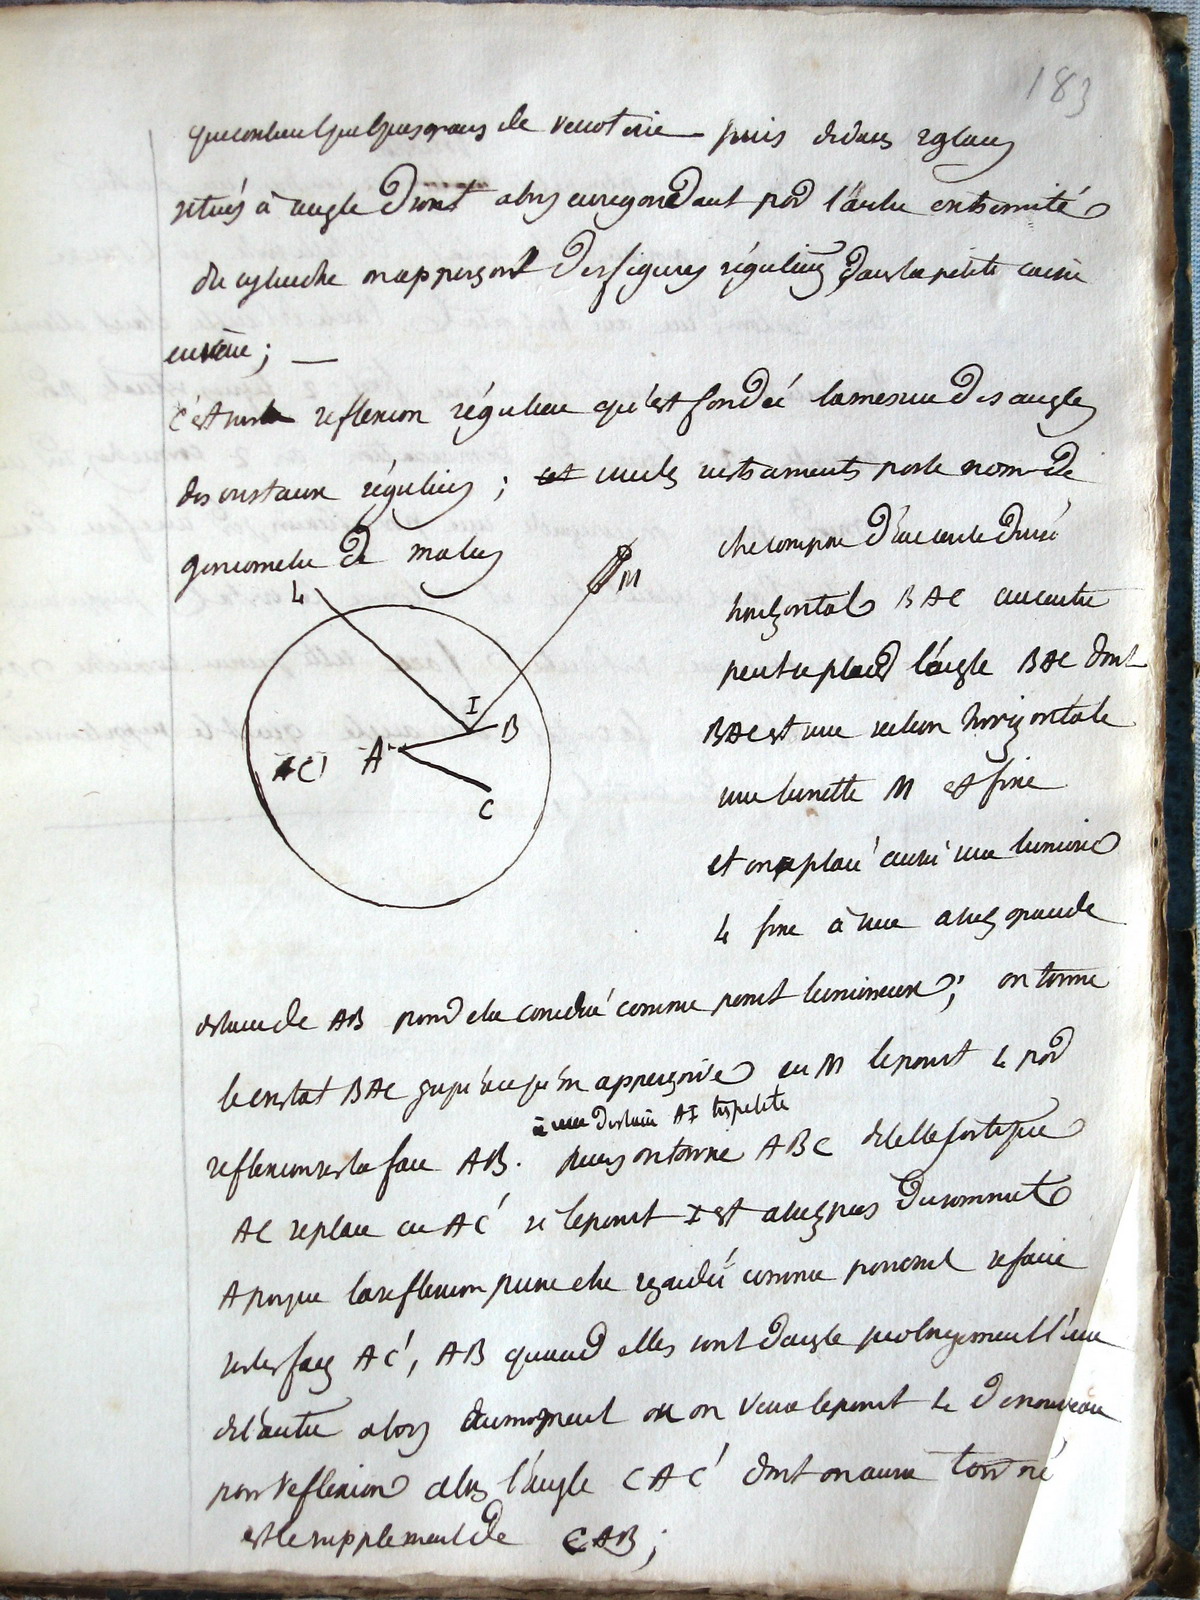 183
quelques grains de verroterie puis dedans 2 glaces
situés à angle droit alors en regardant par l'autre extremité
du cylindre on apperçoit des figures régulières dans la petite caisse
c'est sur la reflexion régulière qu'est fondée la mesure des angles
des cristaux réguliers ; et un des instruments porte nom de
goniometre de malus
L
M
I
B
A
AC'
C
il se compose d'un cercle divisé
horizontal BAC au centre
peut se placer l'angle BAC dont
BAC est une section horizontale
une lunette M est fixe
et on a placé aussi une lumiere
L fixe à une assez grande
distance de AB pour etre considéré comme point lumineux ; on tourne
le cristal BAC jusqu'à ce qu'on apperçoive en M le point L par
à une distance AI très petite
reflexion sur la face AB. puis on tourne ABC de telle sorte que
AC se place en AC' si le point I est assez près du sommet
A pour que la reflexion puisse etre regardée comme pouvant se faire
sur les faces AC', AB quand elles sont dans le prolongement l'une
de l'autre alors au moment ou on verra le point L de nouveau
par reflexion alors l'angle CAC' dont on aura tourné
est le supplement de CAB ;